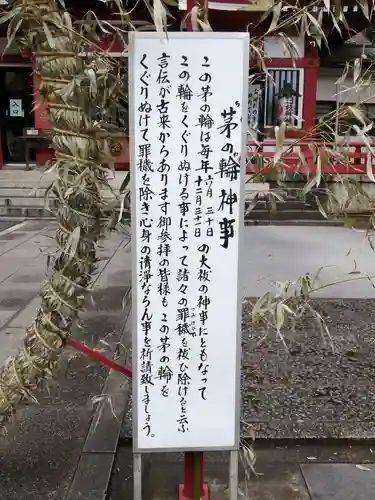 茅の輪神事
ちのわ
この茅の輪は毎年六月三十日十二月三十一日の大祓の神事にともなって
この輪をくぐりぬける事によって諸々の罪穢を祓ひ除けんと云ふ
つみけがれ
言伝が古来からあります御参拝の皆様もこの茅の輪を
くぐりぬけて罪穢を除き心身の清浄ならん事を祈請致しましょう。
入口